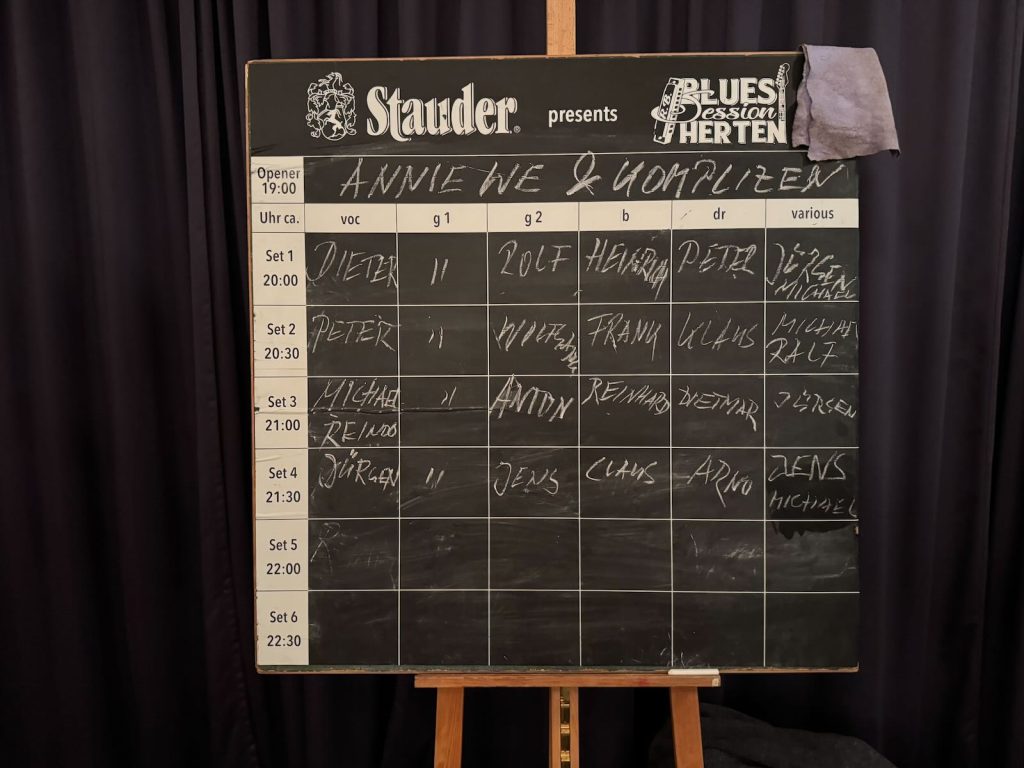 Stauder® presents BLUES Session HERTEN
Opener 19:00 ANNIE WE & KOMPLIZEN
Uhr ca. voc g 1 g 2 b dr various
Set 1 20:00 DIETER " ROLF HEINRICH PETER JÜRGEN MICHAEL
Set 2 20:30 PETER " FRANK KLAUS MICHAEL RALF
Set 3 21:00 MICHAEL REINDO " ANTON REINHARD DIETMAR JÜRGEN
Set 4 21:30 JÜRGEN " JENS CLAUS ARNO JENS MICHAEL
Set 5 22:00
Set 6 22:30